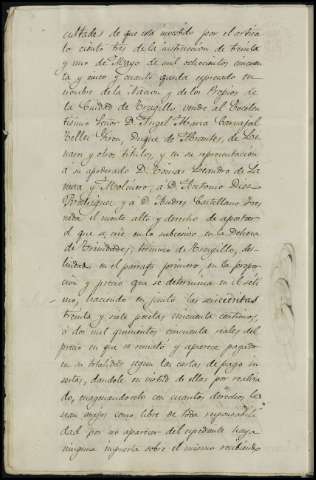 cultades de que esta investido por el articu
lo ciento tres de la instruccion de treinta
y uno de Mayo de mil ochocientos cincuen
ta y cinco, y cuanto queda espresado en
nombre de la Nacion y de los Propios de
la Ciudad de Trugillo vende al Escelen
tisimo Señor D. Angel Maria Carvajal
Tellez Giron, Duque de Abrantes, de Li
nares y otros titulos, y en su representacion
a su apoderado D. Tomas Leandro de La
y Molinero; a D. Antonio Diez
Rodriguez y a D. Andres Castellano
el monte alto y derecho de apostar
el que se crie en lo subcesivo en la Dehesa
de termino de Trugillo, des
lindada en el parrafo primero, en la propor
cion y precio que se determina en el seti
mo, haciendo en junto las seiscientas
treinta y siete pesetas cincuenta centimos,
ó dos mil quinientos cincuenta reales del
precio en que se remató y aparece pagado
en su totalidad segun las cartas de pago in
sertas, dandole en virtud de ellas por recibi
do, enagenandoselo con cuantos derechos le
sean anejos como libre de toda responsabili
dad por no aparecer del espediente haya
ninguna impuesta sobre el mismo recibiendo